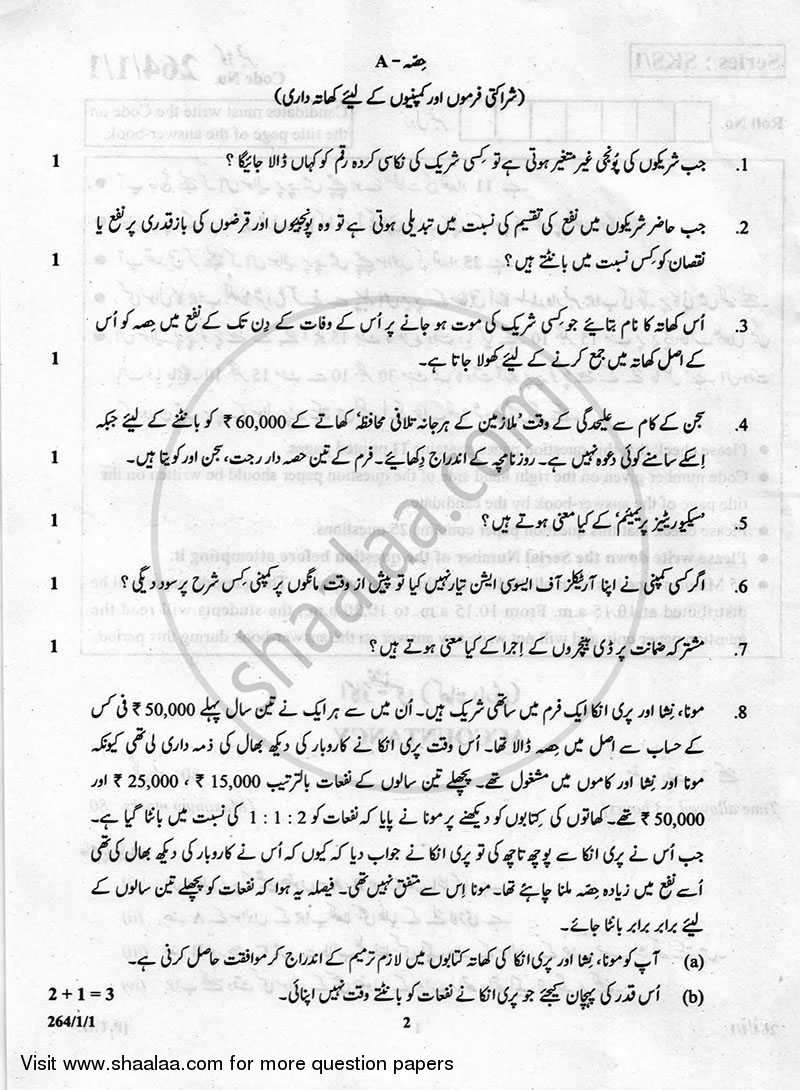 حِصّہ - A
(شراکتی فرموں اور کمپنیوں کے لیٔے کھاتہ داری)
1. جب شریکوں کی پُونجی غیر متغیر ہوتی ہے تو کِسی شریک کی نکاسی کردہ رقم کو کہاں ڈالا جائیگا ؟ 1
2. جب حاضر شریکوں میں نفع کی تقسیم کی نسبت میں تبدیلی ہوتی ہے تو وہ پونجیوں اور قرضوں کی بازقدری پر نفع یا
نقصان کو کِس نسبت میں بانٹتے ہیں ؟ 1
3. اُس کھاتہ کا نام بتایٔے جو کِسی شریک کی موت ہو جانے پر اُس کے وفات کے دِن تک کے نفع میں حِصہ کو اُس
کے اصل کھاتہ میں جمع کرنے کے لیٔے کھولا جاتا ہے۔ 1
4. سجن کے کام سے علیحدگی کے وقت ’ملازمین کے ہرجانہ تلافی محافظہ‘ کھاتے کے 60,000 ₹ کو بانٹنے کے لیٔے جبکہ
اِسکے سامنے کوئی دعوہ نہیں ہے۔ روزنامچہ کے اندراج دِکھایٔے۔ فرم کے تین حصہ دار رجت، سجن اور کویتا ہیں۔ 1
5. ’سیکیوریٹیز پریمیٔم‘ کے کیا معنی ہوتے ہیں ؟ 1
6. اگر کسی کمپنی نے اپنا آرٹیکلز آف ایسوسی ایشن تیار نہیں کیا تو پیش از وقت مانگوں پر کمپنی کِس شرح پر سود دیگی ؟ 1
7. مشترکہ ضمانت پر ڈی بینچروں کے اِجرا کے کیا معنی ہوتے ہیں ؟ 1
8. مونا، نِشا اور پری انکا ایک فرم میں ساتھی شریک ہیں۔ اُن میں سے ہر ایک نے تین سال پہلے 50,000 ₹ فی کس
کے حساب سے اصل میں حِصہ ڈالا تھا۔ اُس وقت پری انکا نے کاروبار کی دیکھ بھال کی ذمہ داری لی تھی کیونکہ
مونا اور نِشا اور کاموں میں مشغول تھے۔ پچھلے تین سالوں کے نفعات بالترتیب 15,000 ₹ ، 25,000 ₹ اور
50,000 ₹ تھے۔ کھاتوں کی کِتابوں کو دیکھنے پر مونا نے پایا کہ نفعات کو 2 : 1 : 1 کی نسبت میں بانٹا گیا ہے۔
جب اُس نے پری انکا سے پوچھ تاچھ کی تو پری انکا نے جواب دیا کہ کیوں کہ اُس نے کاروبار کی دیکھ بھال کی تھی
اُسے نفع میں زیادہ حِصّہ ملنا چاہیٔے تھا۔ مونا اِس سے متفق نہیں تھی۔ فیصلہ یہ ہوا کہ نفعات کو پچھلے تین سالوں کے
لیٔے برابر برابر بانٹا جائے۔
(a) آپ کو مونا، نِشا اور پری انکا کی کھاتہ کتابوں میں لازم ترمیم کے اندراج کر موافقت حاصل کرنی ہے۔
(b) اُس قدر کی پہچان کیجئے جو پری انکا نے نفعات کو بانٹتے وقت نہیں اپنائی۔ 2 + 1 = 3
264/1/1 2
Visit www.shaalaa.com for more question papers
shaalaa.com